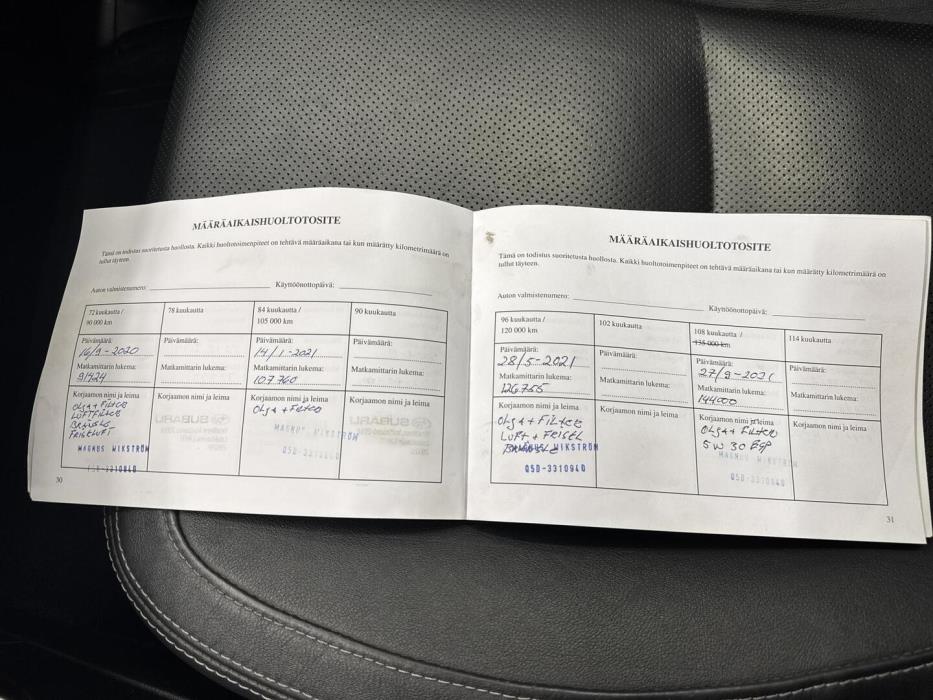 MÄÄRÄAIKAISHUOLTOTOSITE
Tämä on todistus suoritetusta huollosta. Kaikki huoltotoimenpiteet on tehtävä määräaikana tai kun määrätty kilometrimäärä on
tullut täyteen.
Auton valmistenumero:
Käyttöönottopäivä:
72 kuukautta /
90 000 km
78 kuukautta
84 kuukautta /
105 000 km
90 kuukautta
Päivämäärä:
16/9-2020
Päivämäärä:
Päivämäärä:
14/1-2021
Päivämäärä:
Matkamittarin lukema:
91424
Matkamittarin lukema:
Matkamittarin lukema:
107.760
Matkamittarin lukema:
Korjaamon nimi ja leima
OLJA+FILTER
LUFTFILTER
BRÄNSLE
FRISKLUFT
MAGNUS WIKSTRÖM
050-3310940
Korjaamon nimi ja leima
SUBARU
Korjaamon nimi ja leima
OLJA+FILTER
MAGNUS WIKSTRÖM
050-3310940
Korjaamon nimi ja leima
SUBARU
30
MÄÄRÄAIKAISHUOLTOTOSITE
Tämä on todistus suoritetusta huollosta. Kaikki huoltotoimenpiteet on tehtävä määräaikana tai kun määrätty kilometrimäärä on
tullut täyteen.
Auton valmistenumero:
Käyttöönottopäivä:
96 kuukautta /
120 000 km
102 kuukautta
108 kuukautta /
135 000 km
114 kuukautta
Päivämäärä:
28/5-2021
Päivämäärä:
Päivämäärä:
27/9-2021
Päivämäärä:
Matkamittarin lukema:
126755
Matkamittarin lukema:
Matkamittarin lukema:
144000
Matkamittarin lukema:
Korjaamon nimi ja leima
OLJA+FILTER
LUFT+FRISKL
MAGNUS WIKSTRÖM
050-3310940
Korjaamon nimi ja leima
Korjaamon nimi ja leima
OLJA+FILTER
5W30
MAGNUS WIKSTRÖM
050-3310940
Korjaamon nimi ja leima
31